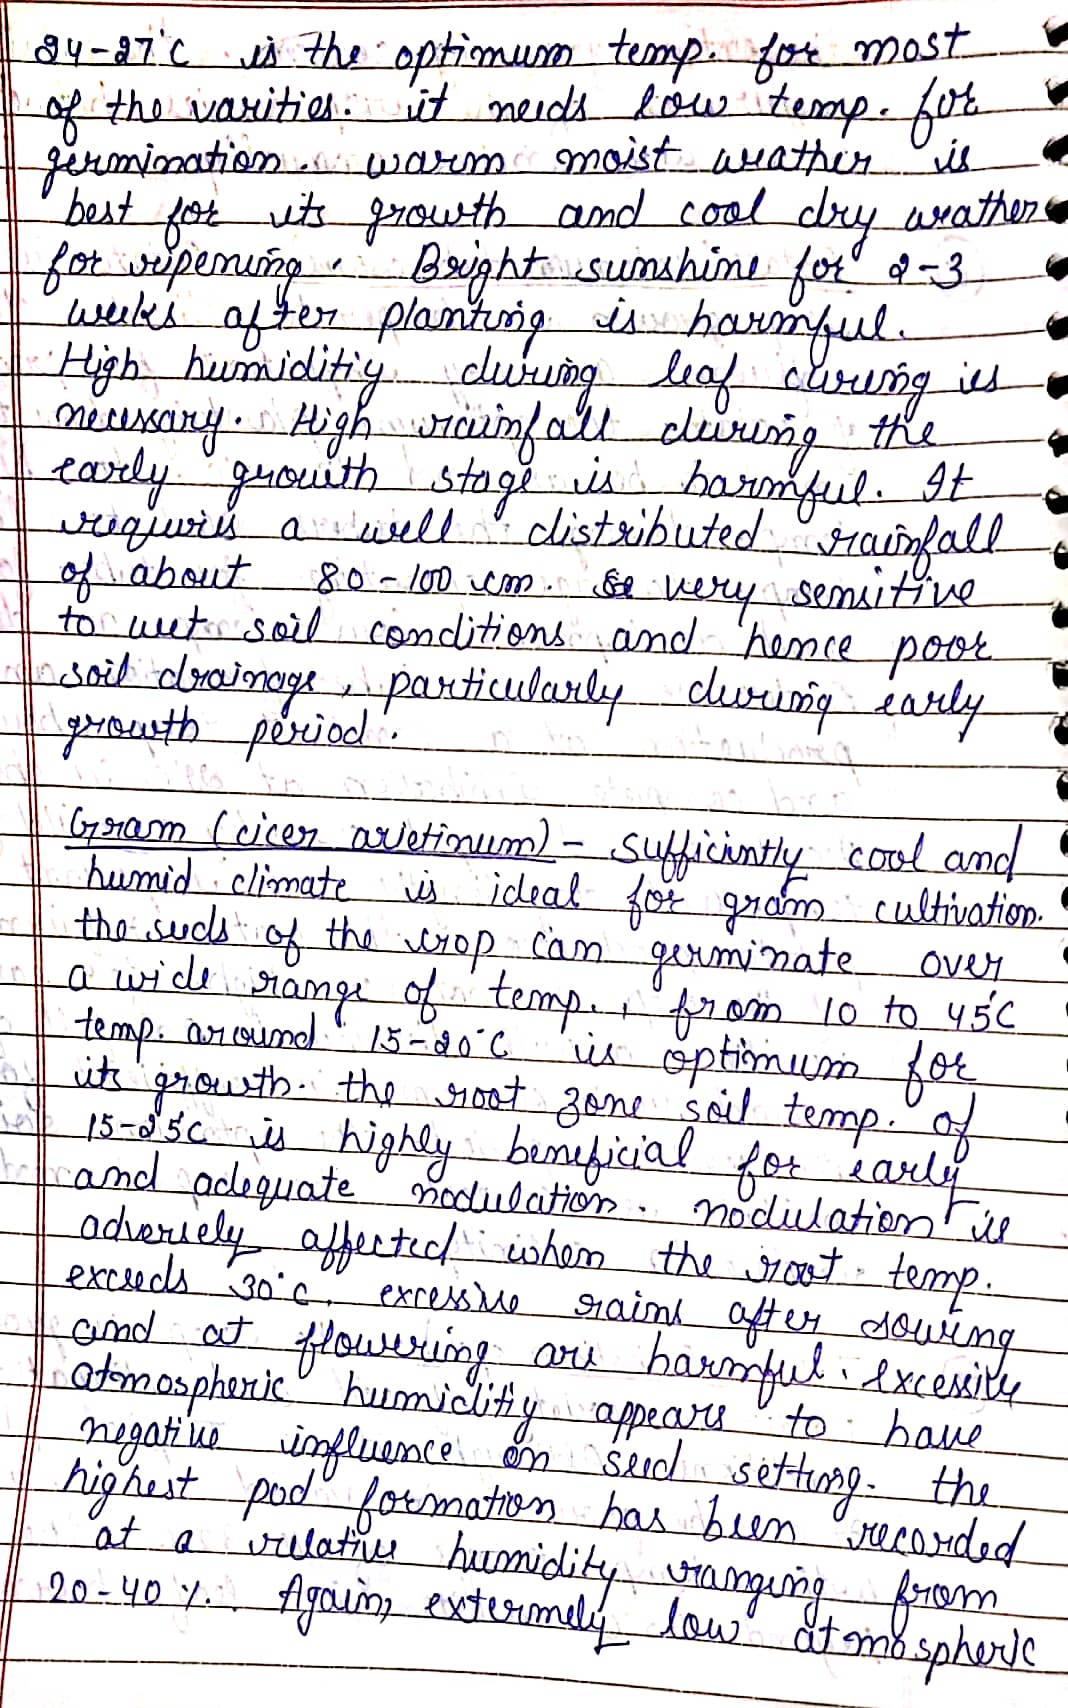 24-27°C is the optimum temp. for most
of the varities. it needs low temp. for
germination. warm moist weather is
best for its growth and cool dry weather
for ripening. Bright sunshine for 2-3
weeks after planting is harmful.
High humiditiy during leaf curing is
necessary. High rainfall during the
early growth stage is harmful. It
requires a well distributed rainfall
of about 80-100 cm. very sensitive
to wet soil conditions and hence poor
soil drainage, particularly during early
growth period.
Gram (cicer arietinum) - Sufficiently cool and
humid climate is ideal for gram cultivation.
the seeds of the crop can germinate over
a wide range of temp., from 10 to 45°C
temp. around 15-20°C is optimum for
its growth. the root zone soil temp. of
15-25c is highly beneficial for early
and adequate nodulation. nodulation is
adversely affected when the root temp.
exceeds 30°c. excessive rains after sowing
and at flowering are harmful. excessive
atmospheric humidity appears to have
negative influence on seed setting. the
highest pod formation has been recorded
at a relative humidity ranging from
20-40%. Again, extermely low atmospheric